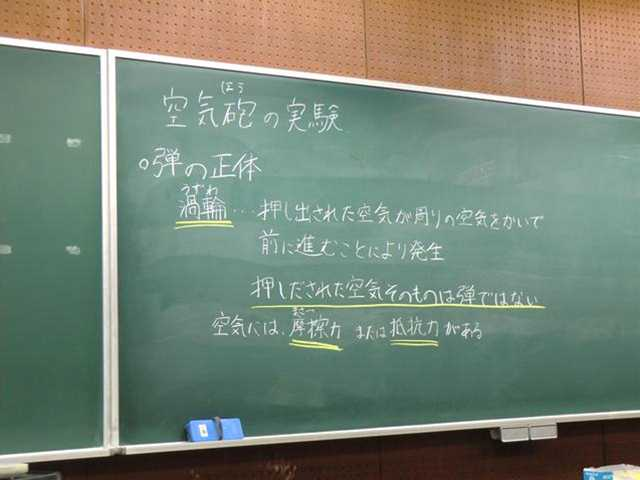 空気砲の実験
ほう
○弾の正体
うずわ
渦輪…押し出された空気が周りの空気をかいで
前に進むことにより発生
押しだされた空気そのものは弾ではない
まさつ
空気には、摩擦力または抵抗力がある